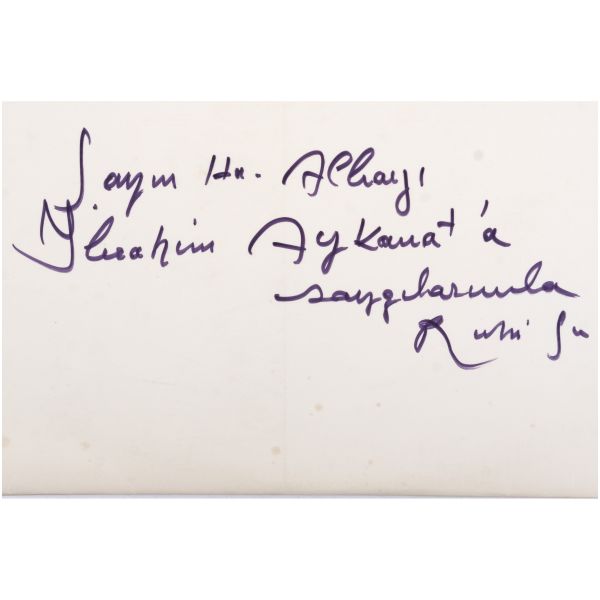 Sayın Hv. Albayı
İbrahim Aykanat'a
saygılarımla
Ruhi Su